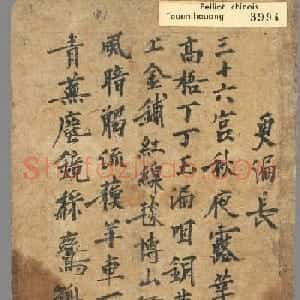 Pelliot chinois
Touen-houang 3994
更漏長
三十六宮秋夜露華
高梧丁丁玉漏咽銅
上金鋪紅線毯博山
風暗觸流蘓羊車一
青蕪塵鏡綵鸞